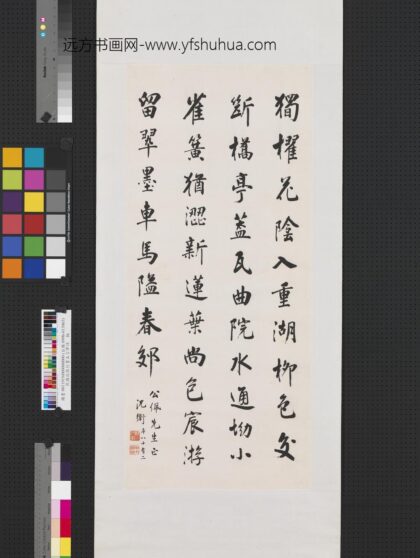 远方书画网-www.yfshuhua.com
獨櫂花陰入重湖柳色交
斷橋亭蓋瓦曲院水通坳小
雀簧猶澀新蓮葉尚包宸游
留翠墨車馬隘春郊
公佩先生正
沈衛年八十有二